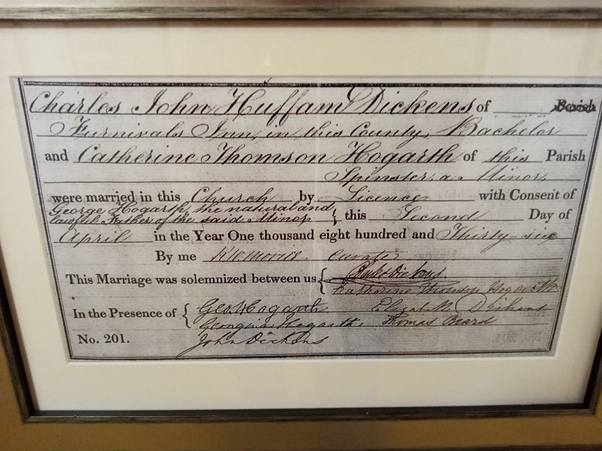 Charles John Huffam Dickens of Parish
Furnivals Inn, in this County, Bachelor
and Catherine Thomson Hogarth of this Parish
Spinster, a Minor,
were married in this Church by Licence with Consent of
George Hogarth, the natural and
lawful Father of the said Minor } this Second Day of
April in the Year One thousand eight hundred and Thirty-six
By me Curate
This Marriage was solemnized between us { Charles Dickens
Catherine Thomson Hogarth
In the Presence of { Geo Hogarth Elizabeth Dickens
Georgina Hogarth Thomas Beard
No. 201. John Dickens